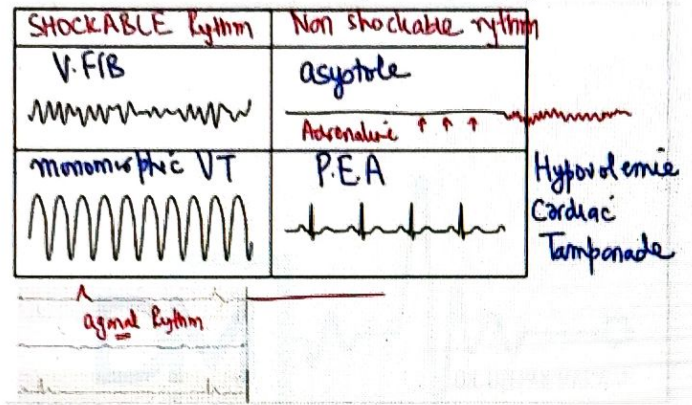 SHOCKABLE Rythm
Non shockable rythm
V.FIB
asystole
Adrenaline ↑ ↑ ↑
monomorphic VT
P.E.A
Hypovolemie
Cardiac
Tamponade
agonal Rythm